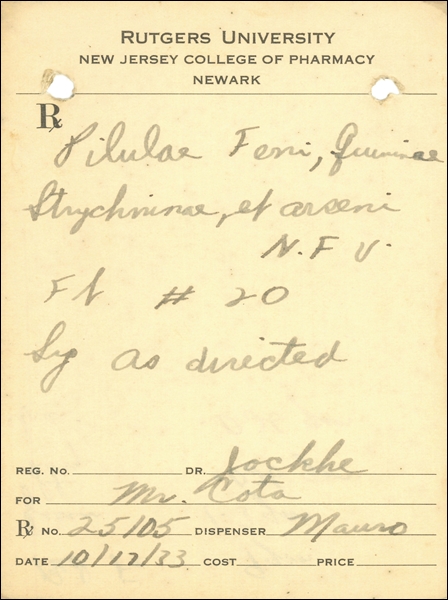 RUTGERS UNIVERSITY
NEW JERSEY COLLEGE OF PHARMACY
NEWARK
℞
Pilulae Ferri, Quininae
Strychninae, et arseni
N. F. V.
Ft # 20
Sig as directed
REG. NO. DR. Jockhe
FOR Mr. Cota
℞ No. 25105 DISPENSER Mauro
DATE 10/17/33 COST PRICE